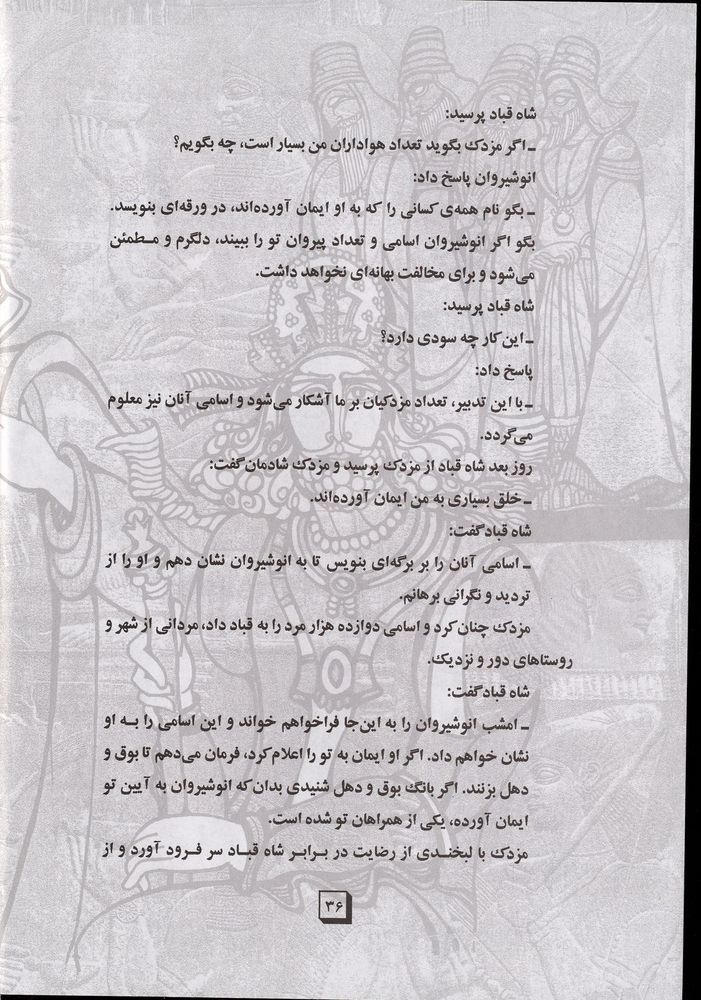 شاه قباد پرسید:
ـ اگر مزدک بگوید تعداد هواداران من بسیار است، چه بگویم؟
انوشیروان پاسخ داد:
ـ بگو نام همه‌ی کسانی را که به او ایمان آورده‌اند، در ورقه‌ای بنویسد.
بگو اگر انوشیروان اسامی و تعداد پیروان تو را ببیند، دلگرم و مـطمئن
می‌شود و برای مخالفت بهانه‌ای نخواهد داشت.
شاه قباد پرسید:
ـ این کار چه سودی دارد؟
پاسخ داد:
ـ با این تدبیر، تعداد مزدکیان بر ما آشکار می‌شود و اسامی آنان نیز معلوم
می‌گردد.
روز بعد شاه قباد از مزدک پرسید و مزدک شادمان گفت:
ـ خلق بسیاری به من ایمان آورده‌اند.
شاه قباد گفت:
ـ اسامی آنان را بر برگه‌ای بنویس تا به انوشیروان نشان دهم و او را از
تردید و نگرانی برهانم.
مزدک چنان کرد و اسامی دوازده هزار مرد را به قباد داد، مردانی از شهر و
روستاهای دور و نزدیک.
شاه قباد گفت:
ـ امشب انوشیروان را به این‌جا فراخواهم خواند و این اسامی را بـه او
نشان خواهم داد. اگر او ایمان به تو را اعلام کرد، فرمان می‌دهم تا بوق و
دهل بزنند. اگر بانگ بوق و دهل شنیدی بدان که انوشیروان به آیین تو
ایمان آورده، یکی از همراهان تو شده است.
مزدک با لبخندی از رضایت در بـرابر شاه قبـاد سر فـرود آورد و از
۳۶